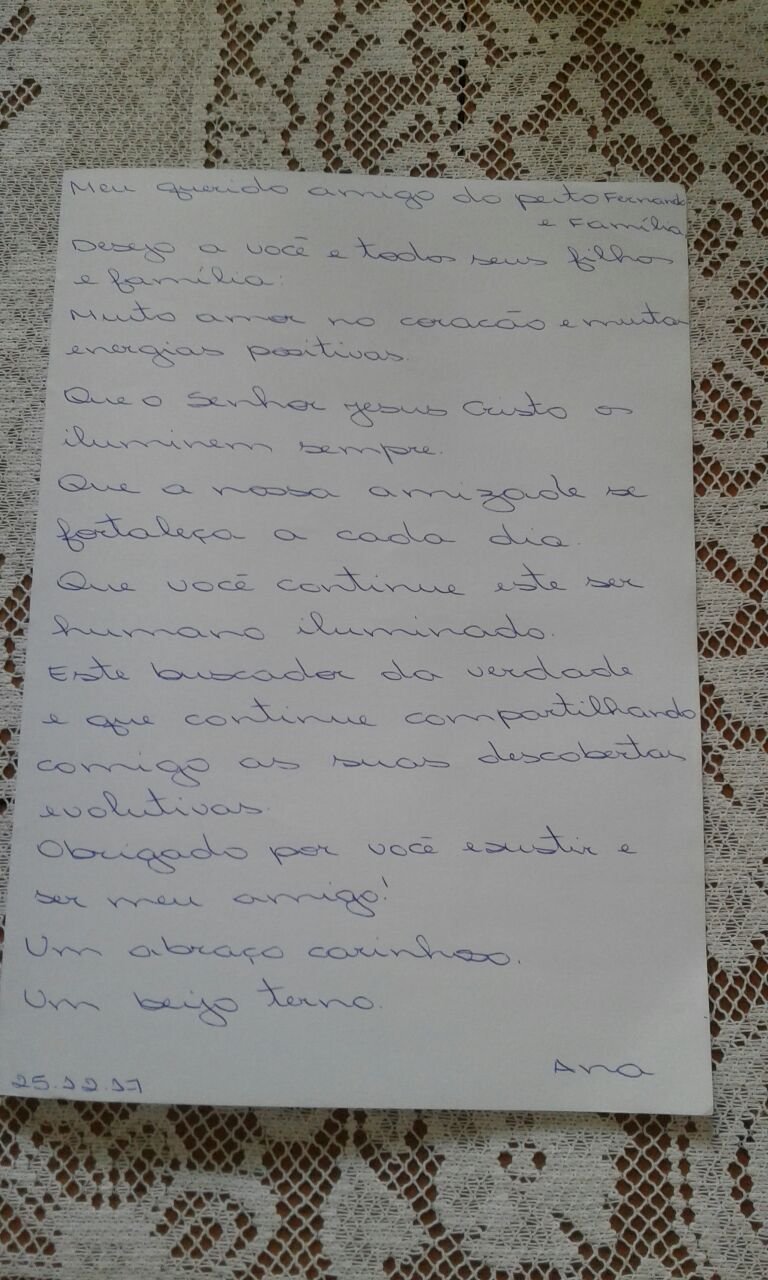 Meu querido amigo do peito Fernando
e Família
Desejo a você e todos seus filhos
e família:
Muito amor no coracão e muita
energias positivas.
Que o Senhor Jesus Cristo os
iluminem sempre.
Que a nossa amizade se
fortaleça a cada dia.
Que você continue este ser
humano iluminado.
Este buscador da verdade
e que continue compartilhando
comigo as suas descobertas
evolutivas.
Obrigado por você existir e
ser meu amigo!
Um abraço carinhoso.
Um beijo terno.
Ana
25.12.17